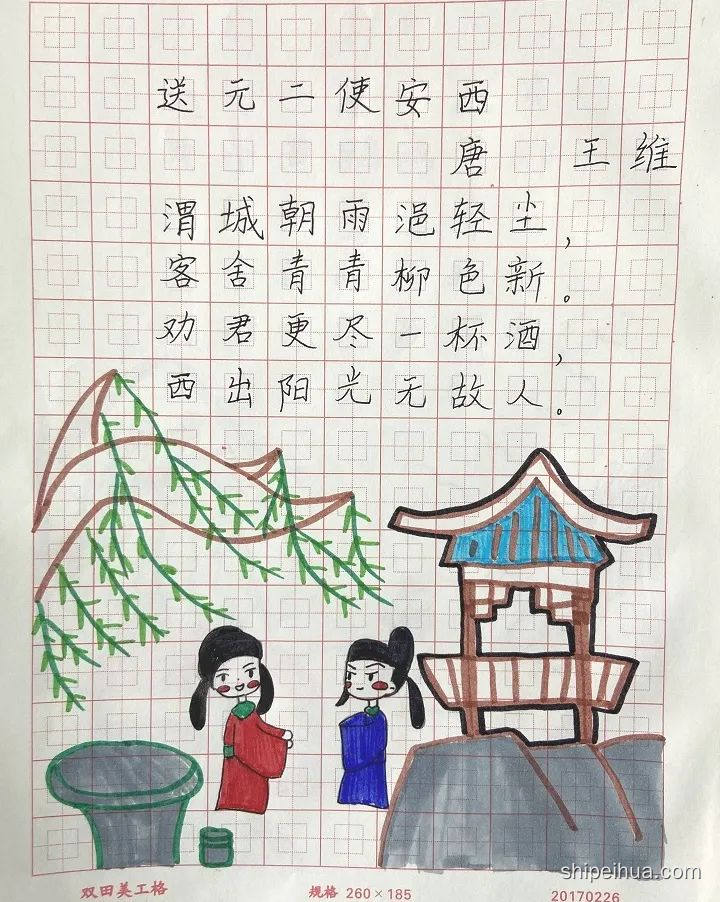 送元二使安西
唐 王维
渭城朝雨浥轻尘，
客舍青青柳色新。
劝君更尽一杯酒，
西出阳光无故人。
双田美工格 规格 260×185 20170226
shipeihua.com